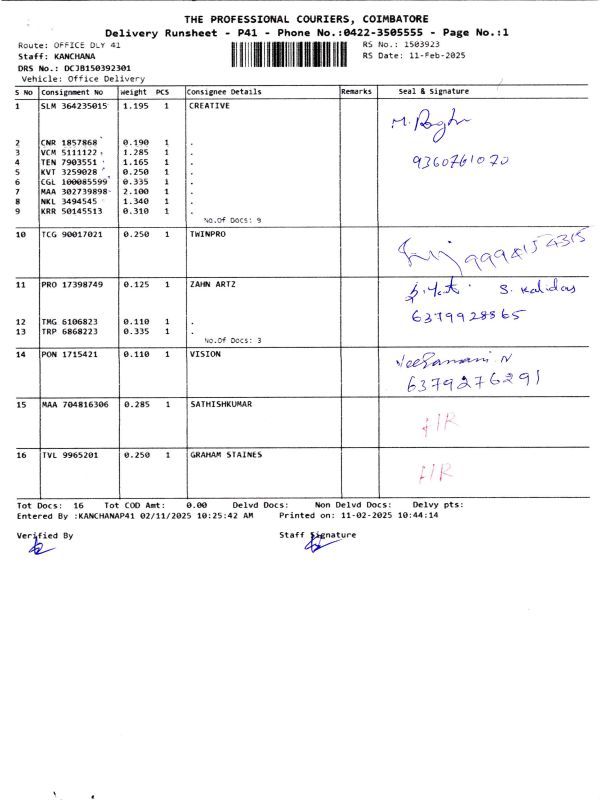 THE PROFESSIONAL COURIERS, COIMBATORE
Delivery Runsheet - P41 - Phone No.:0422-3505555 - Page No.:1
Route: OFFICE DLY 41 RS No.: 1503923
Staff: KANCHANA RS Date: 11-Feb-2025
DRS No.: DCJB150392301
Vehicle: Office Delivery
S No Consignment No Weight PCS Consignee Details Remarks Seal & Signature
1 SLM 364235015 1.195 1 CREATIVE
2 CNR 1857868 0.190 1 .
3 VCM 5111122 1.285 1 .
4 TEN 7903551 1.165 1 . 9360761070
5 KVT 3259028 0.250 1 .
6 CGL 100085599 0.335 1 .
7 MAA 302739898 2.100 1 .
8 NKL 3494545 1.340 1 .
9 KRR 50145513 0.310 1 .
No.Of Docs: 9
10 TCG 90017021 0.250 1 TWINPRO
9994154315
11 PRO 17398749 0.125 1 ZAHN ARTZ S. Kalidas
12 TMG 6106823 0.110 1 . 6379928865
13 TRP 6868223 0.335 1 .
No.Of Docs: 3
14 PON 1715421 0.110 1 VISION
6379276291
15 MAA 704816306 0.285 1 SATHISHKUMAR
16 TVL 9965201 0.250 1 GRAHAM STAINES
Tot Docs: 16 Tot COD Amt: 0.00 Delvd Docs: Non Delvd Docs: Delvy pts:
Entered By :KANCHANAP41 02/11/2025 10:25:42 AM Printed on: 11-02-2025 10:44:14
Verified By Staff Signature